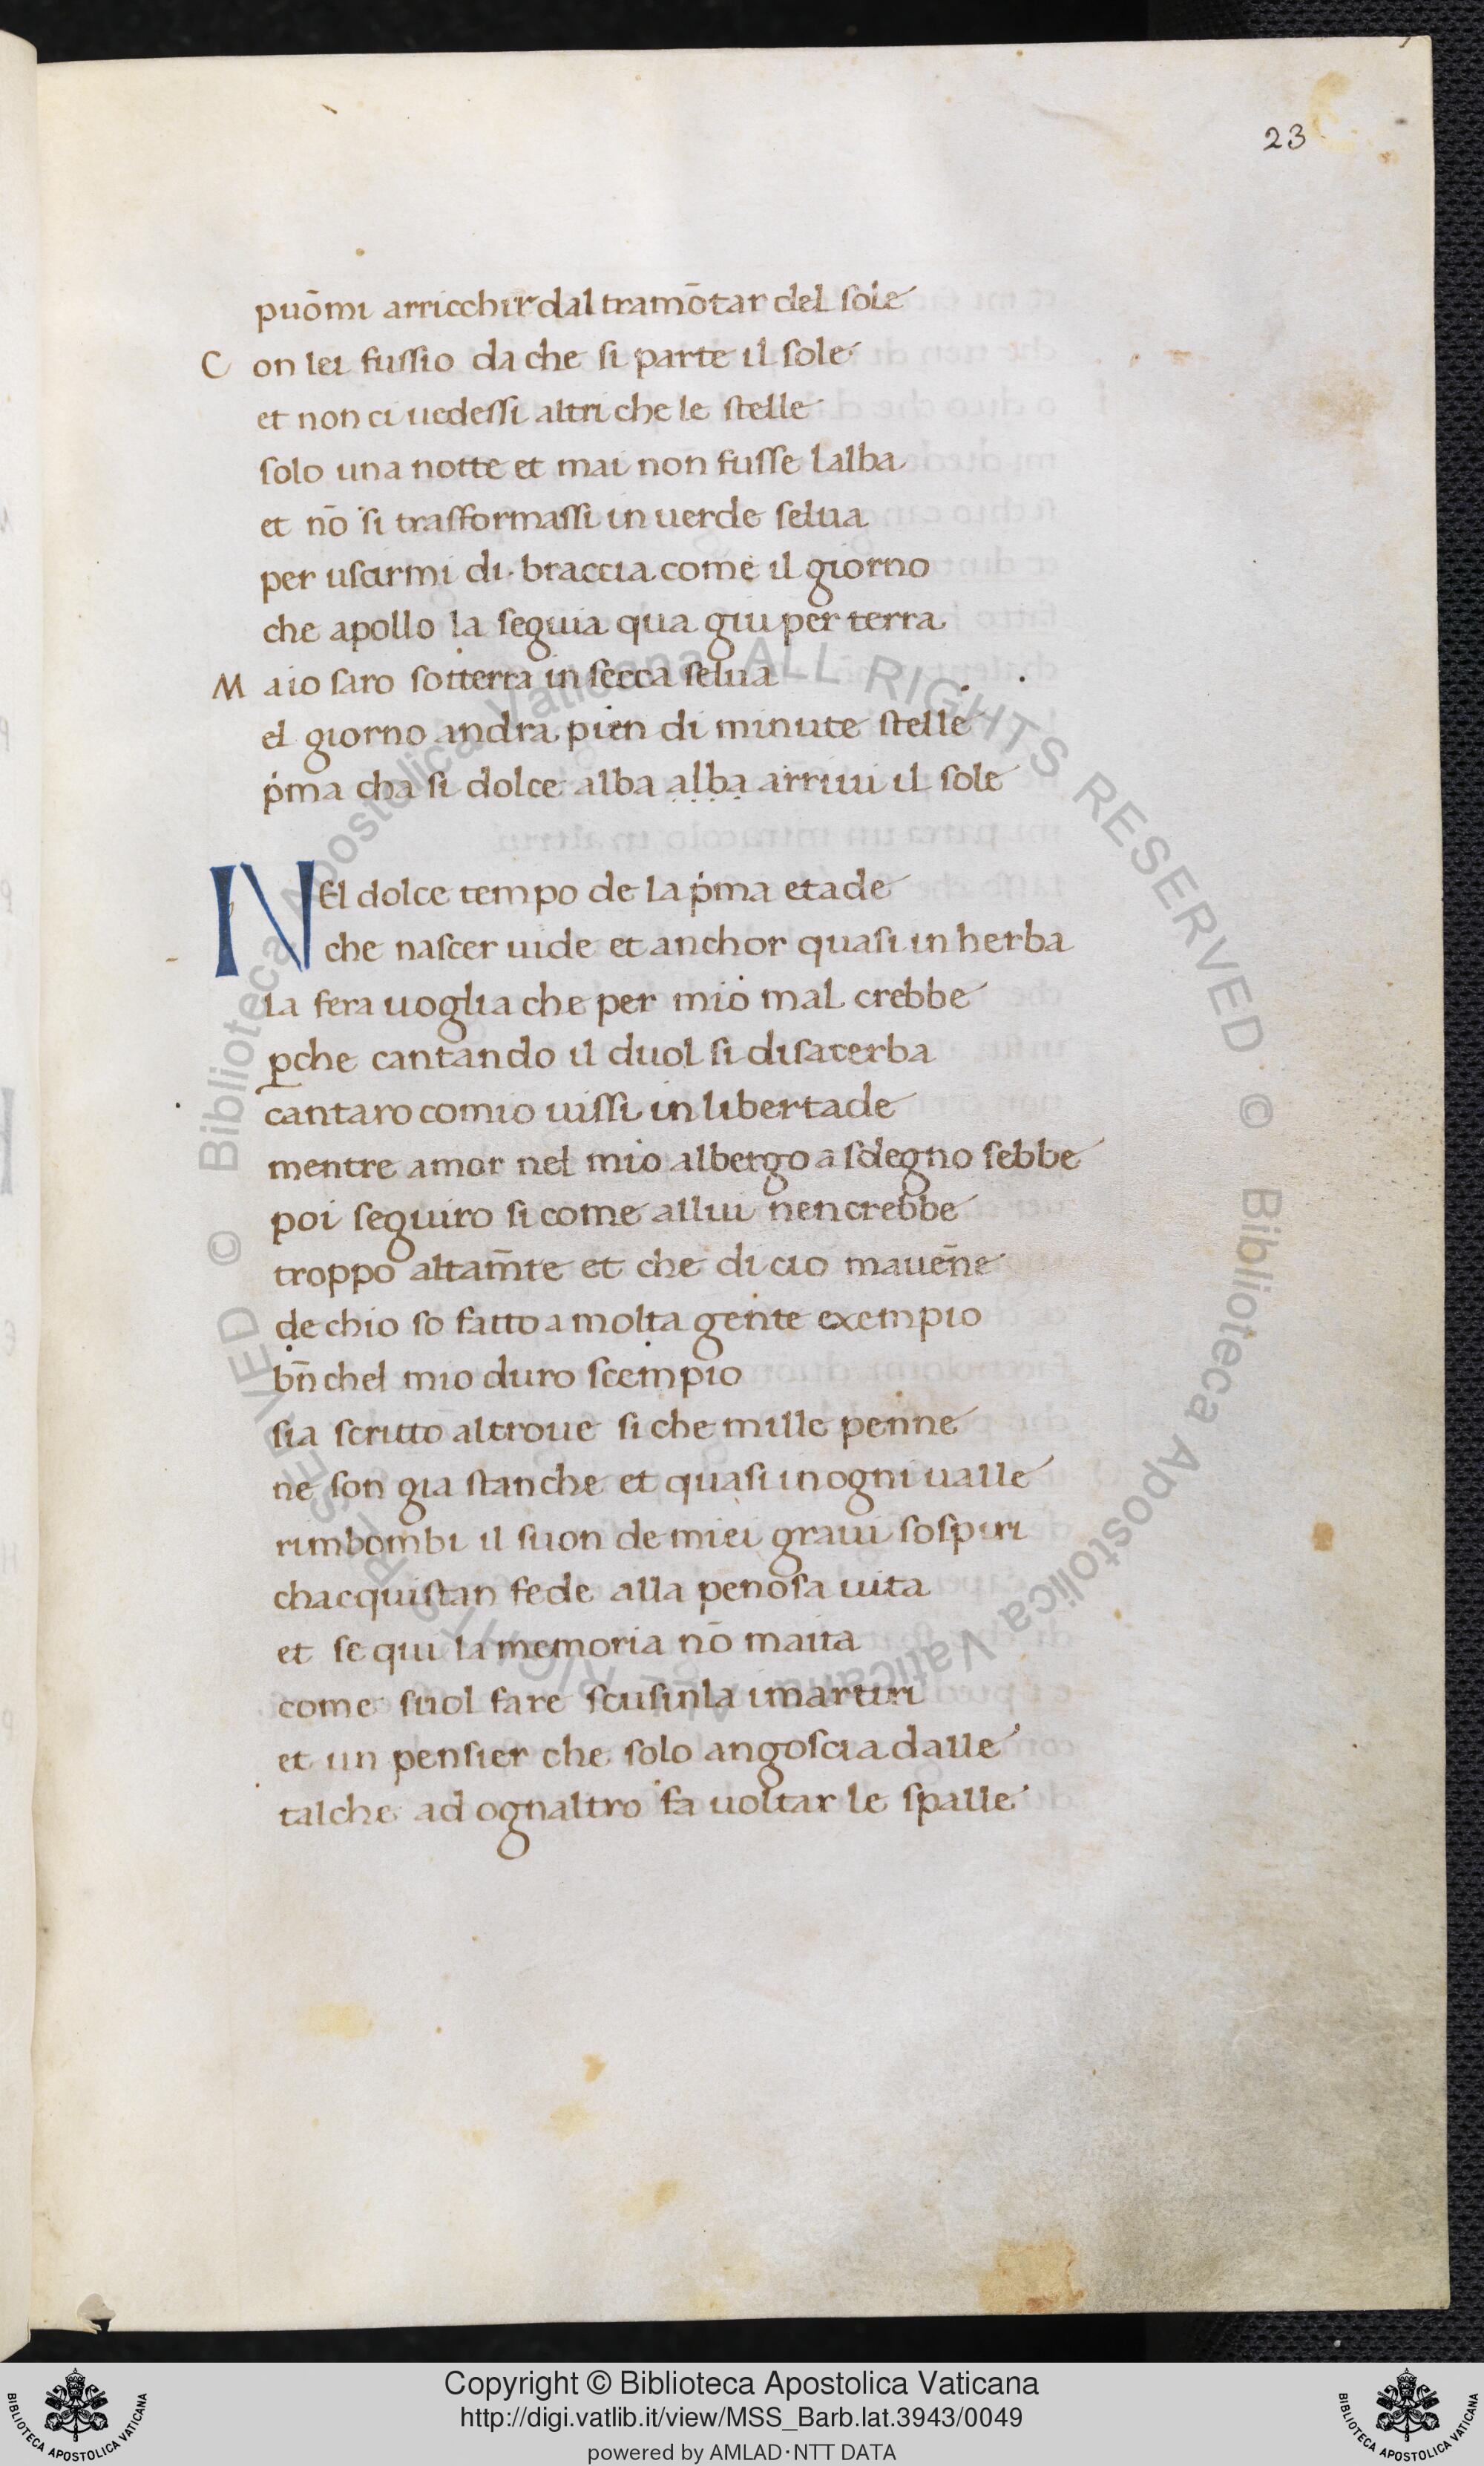 23
puōmi arricchir dal tramōtar del sole
C on lei fussio da che si parte il sole
et non ci uedessi altri che le stelle
solo una notte et mai non fusse lalba
et nō si trasformassi in uerde selua
per uscirmi di braccia come il giorno
che apollo la seguia qua giu per terra
M a io saro sotterra in secca selua
el giorno andra pien di minute stelle
ṗma cha si dolce alba alba arriui il sole
NEl dolce tempo de la ṗma etade
che nascer uide et anchor quasi in herba
la fera uoglia che per mio mal crebbe
ꝑche cantando il duol si disacerba
cantaro comio uissi in libertade
mentre amor nel mio albergo a sdegno sebbe
poi seguiro si come allui nencrebbe
troppo altam̄te et che di cio mauen̄e
de chio so fatto a molta gente exempio
bn̄ chel mio duro scempio
sia scritto altroue si che mille penne
ne son gia stanche et quasi in ogni ualle
rimbombi il suon de miei graui sospiri
chacquistan fede alla penosa uita
et se qui la memoria nō maita
come suol fare scusinla i martiri
et un pensier che solo angoscia dalle
talche ad ognaltro fa uoltar le spalle
© Biblioteca Apostolica Vaticana ALL RIGHTS RESERVED © Biblioteca Apostolica Vaticana ALL RIGHTS RESERVED
Copyright © Biblioteca Apostolica Vaticana
http://digi.vatlib.it/view/MSS_Barb.lat.3943/0049
powered by AMLAD·NTT DATA
BIBLIOTECA APOSTOLICA VATICANA
BIBLIOTECA APOSTOLICA VATICANA